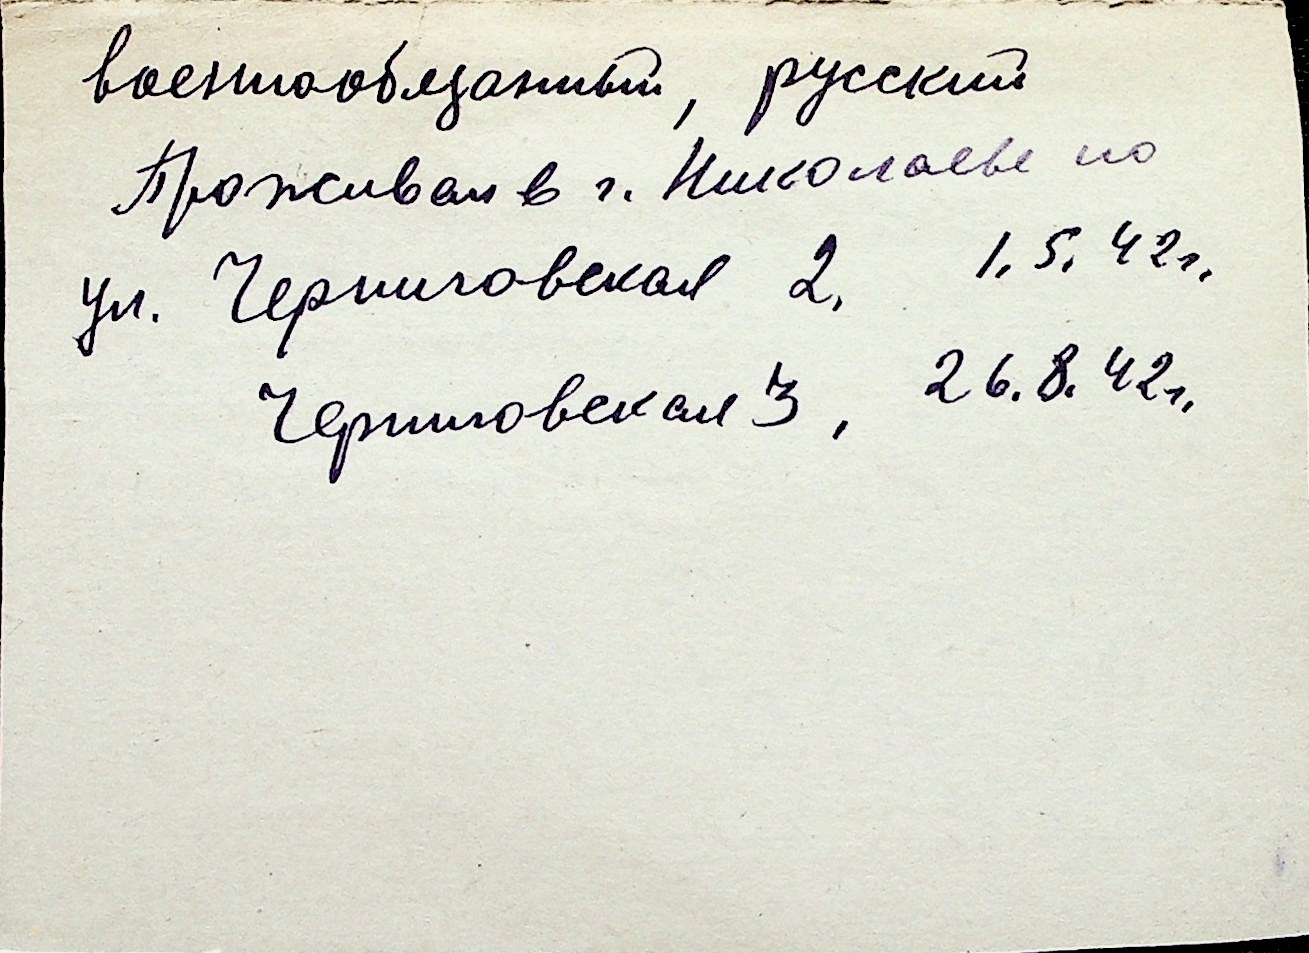 военнообязанный, русский
Проживал в г. Николаеве по
ул. Черниговская 2, 1.5.42г.
Черниговская 3, 26.8.42г.